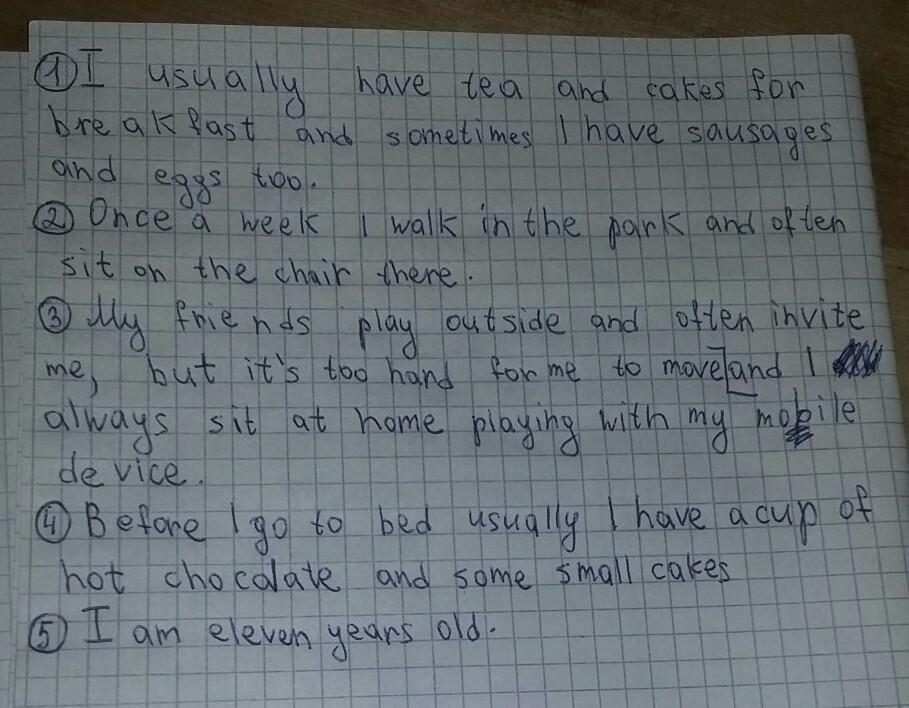 ① I usually have tea and cakes for
breakfast and sometimes I have sausages
and eggs too.
② Once a week I walk in the park and often
sit on the chair there.
③ My friends play outside and often invite
me, but it's too hard for me to move and I
always sit at home playing with my mobile
device.
④ Before I go to bed usually I have a cup of
hot chocolate and some small cakes
⑤ I am eleven years old.